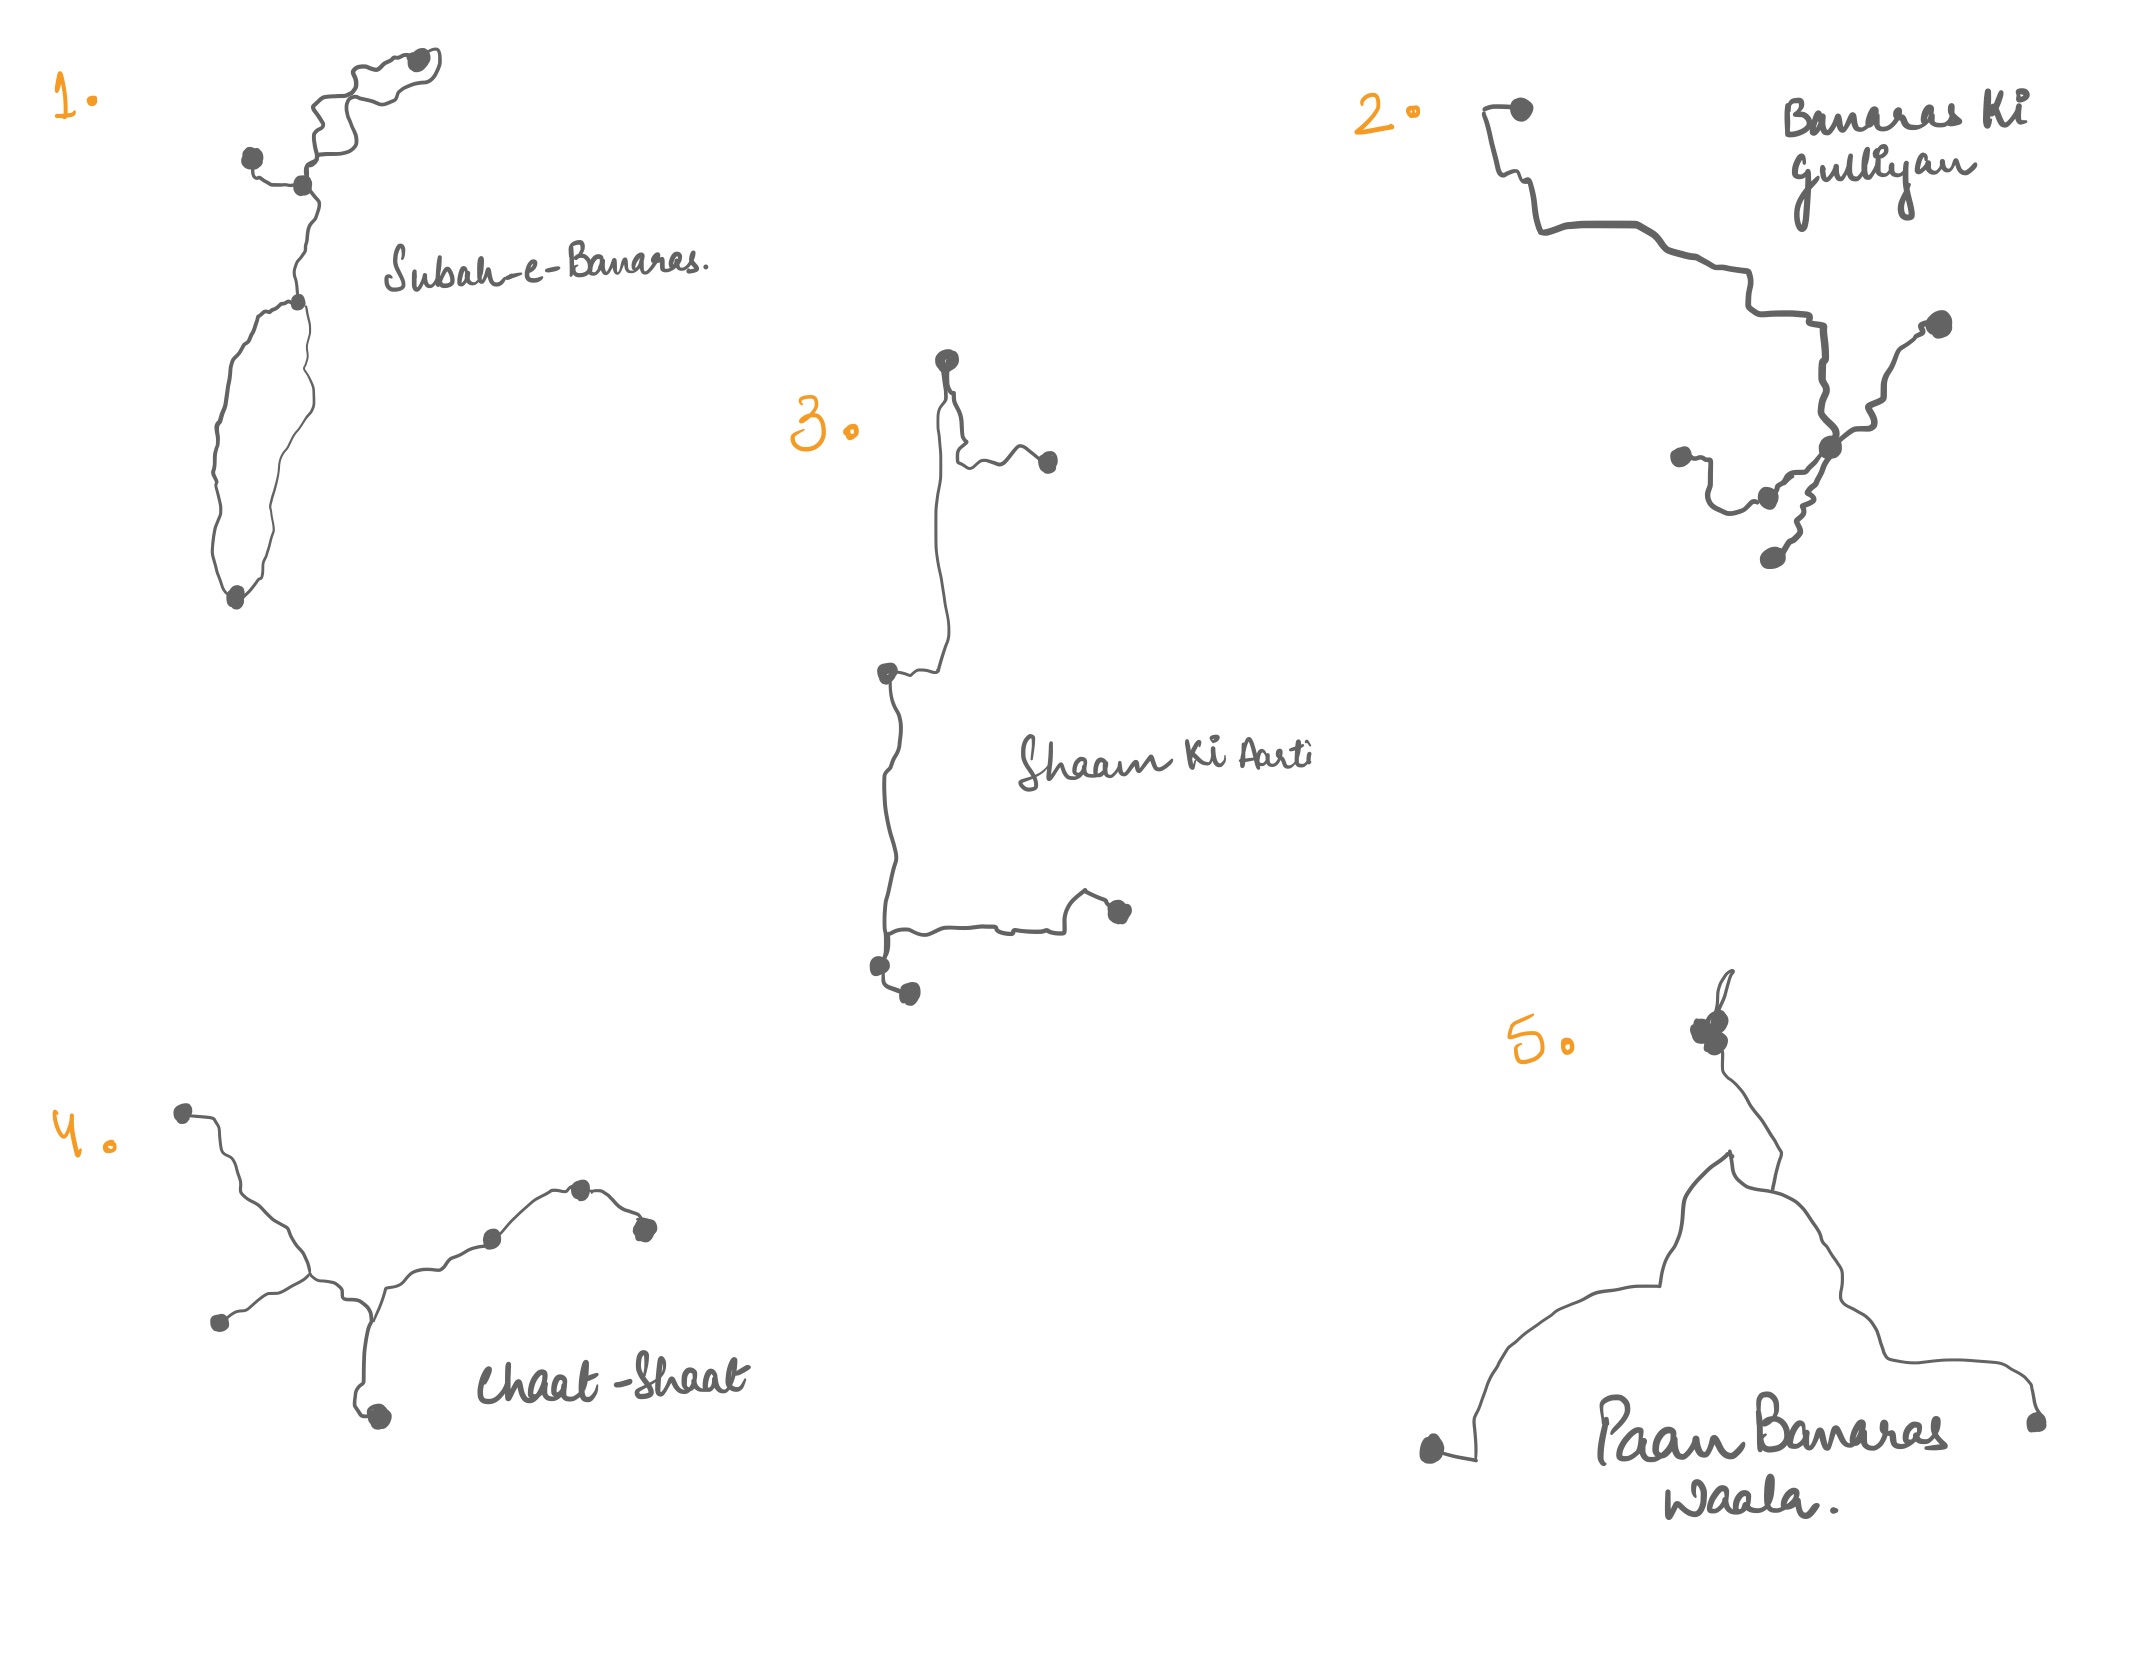 1.
Subah-e-Banaras.
2.
Banaras Ki
Gulliyan
3.
Shaam Ki Aarti
4.
Chaat-Shaat
5.
Paan Banaras
Waala.